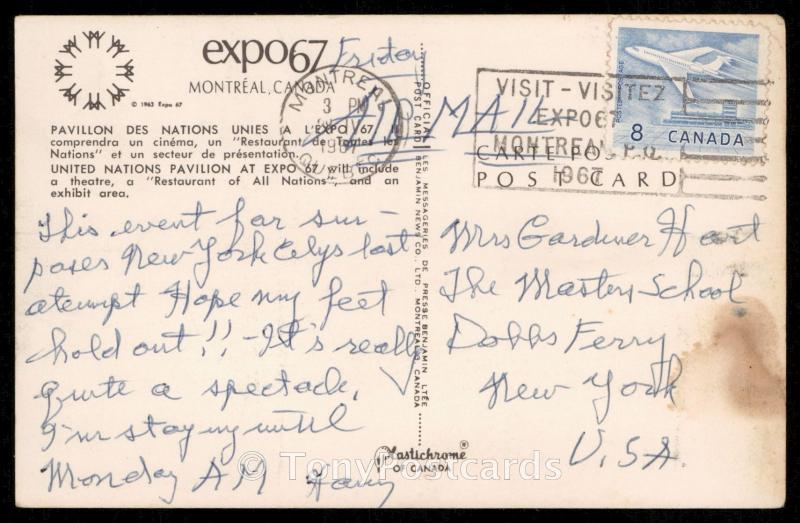 expo67
MONTRÉAL, CANADA
© 1963 Expo 67
PAVILLON DES NATIONS UNIES A L'EXPO '67
comprendra un cinéma, un "Restaurant de Toutes les
Nations" et un secteur de présentation.
UNITED NATIONS PAVILION AT EXPO '67 will include
a theatre, a "Restaurant of All Nations", and an
exhibit area.
Friday
AIR MAIL
This event far sur-
passes New York Citys last
atempt Hope my feet
hold out!! - It's really
quite a spectacle,
I'm staying until
Monday AM
OFFICIAL
POST CARD
LES MESSAGERIES DE PRESSE BENJAMIN LTÉE
BENJAMIN NEWS CO., LTD., MONTREAL 9, CANADA
Plastichrome®
OF CANADA
MONTREAL
3 PM
1967
QUEBEC
VISIT - VISITEZ
EXPO 67
MONTREAL P.Q.
1967
8 CANADA
POSTES POSTAGE
CARTE POSTALE
POST CARD
Mrs Gardiner
The Masters School
Dobbs Ferry
New York
U.S.A.
© TonyPostcards